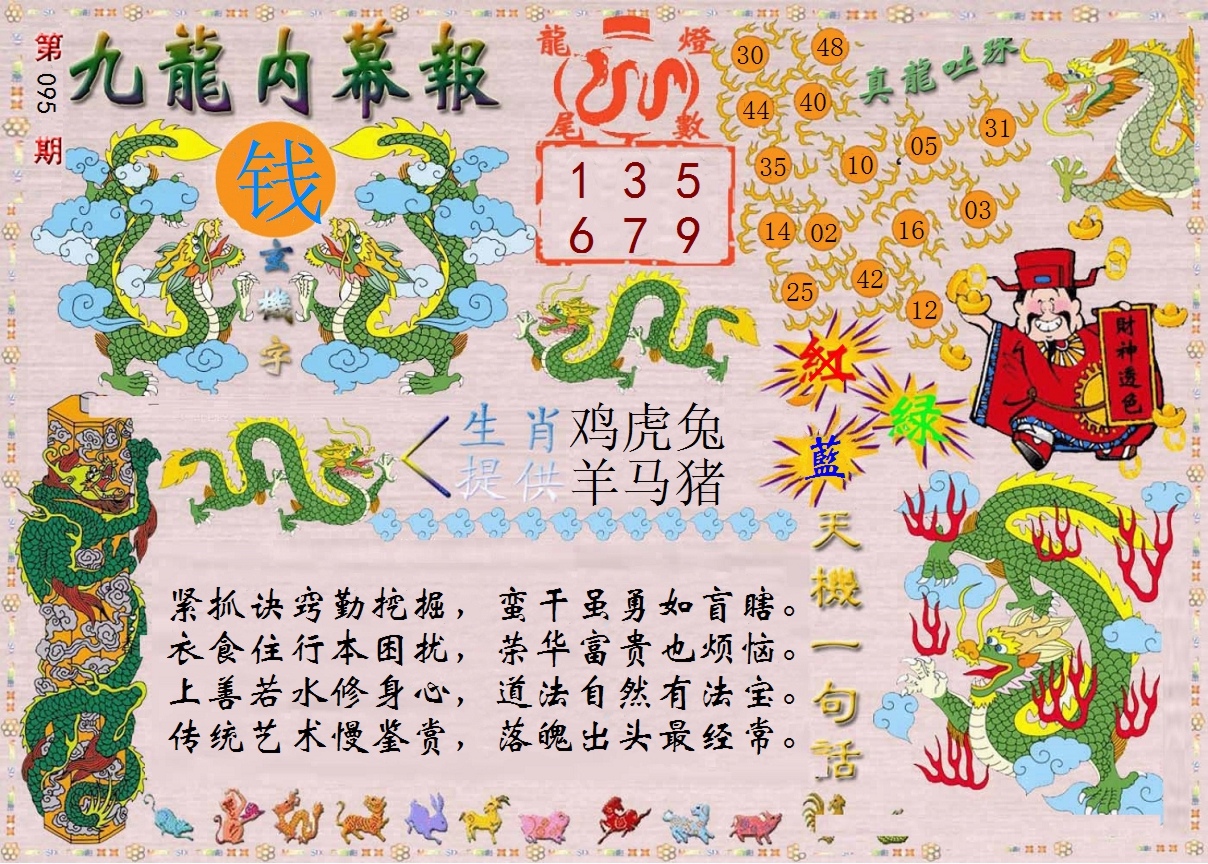 第095期
九龍内幕報
钱
玄機字
龍燈
尾數
1 3 5
6 7 9
真龍吐珠
30 48
44 40
35 10 05 31
14 02 16 03
25 42 12
財神透色
紅
綠
藍
生肖提供
鸡虎兔
羊马猪
天機一句話
紧抓诀窍勤挖掘，蛮干虽勇如盲瞎。
衣食住行本困扰，荣华富贵也烦恼。
上善若水修身心，道法自然有法宝。
传统艺术慢鉴赏，落魄出头最经常。